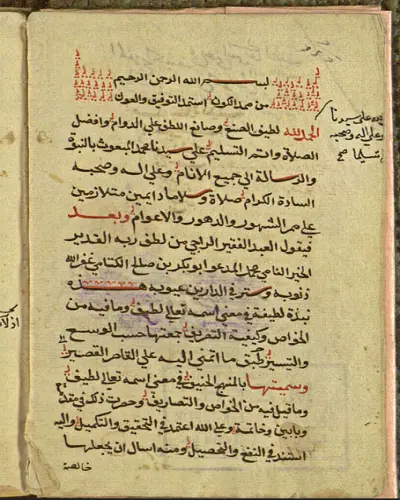 بسم الله الرحمن الرحيم
من ممد الكون استمد التوفيق والعون
الحمد لله لطيف الصنع وصانع اللطف على الدوام وافضل
الصلاة واتم التسليم على سيدنا محمد المبعوث بالنبوة
والرسالة الى جميع الانام وعلى اله وصحبه
السادة الكرام صلاة وسلاما دايمين متلازمين
على ممر الشهور والدهور والاعوام وبعد
فيقول العبد الفقير الراجي من لطف ربه القدير
الخير النامي محمد المدعو ابو بكر بن صالح الكتامي غفر الله
ذنوبه وستر في الدارين عيوبه هذه
نبذة لطيفة في معنى اسمه تعالى لطيف وما فيه من
الخواص وكيفية التصرف جمعتها حسب الوسع
والتيسير طبق ما انتهى اليه علي القاصر القصير
وسميتها بالمنهج الحنيف في معنى اسمه تعالى لطيف
وما قيل فيه من الخواص والتصاريف وحررت ذلك في مقدمة
وبابين وخاتمة وعلى الله اعتمد في التحقيق والتكميل واليه
استند في النفع والتحصيل ومنه اسال ان يجعلها
خالصة
على سيدنا
وعلى اله وصحبه
تسليما صح